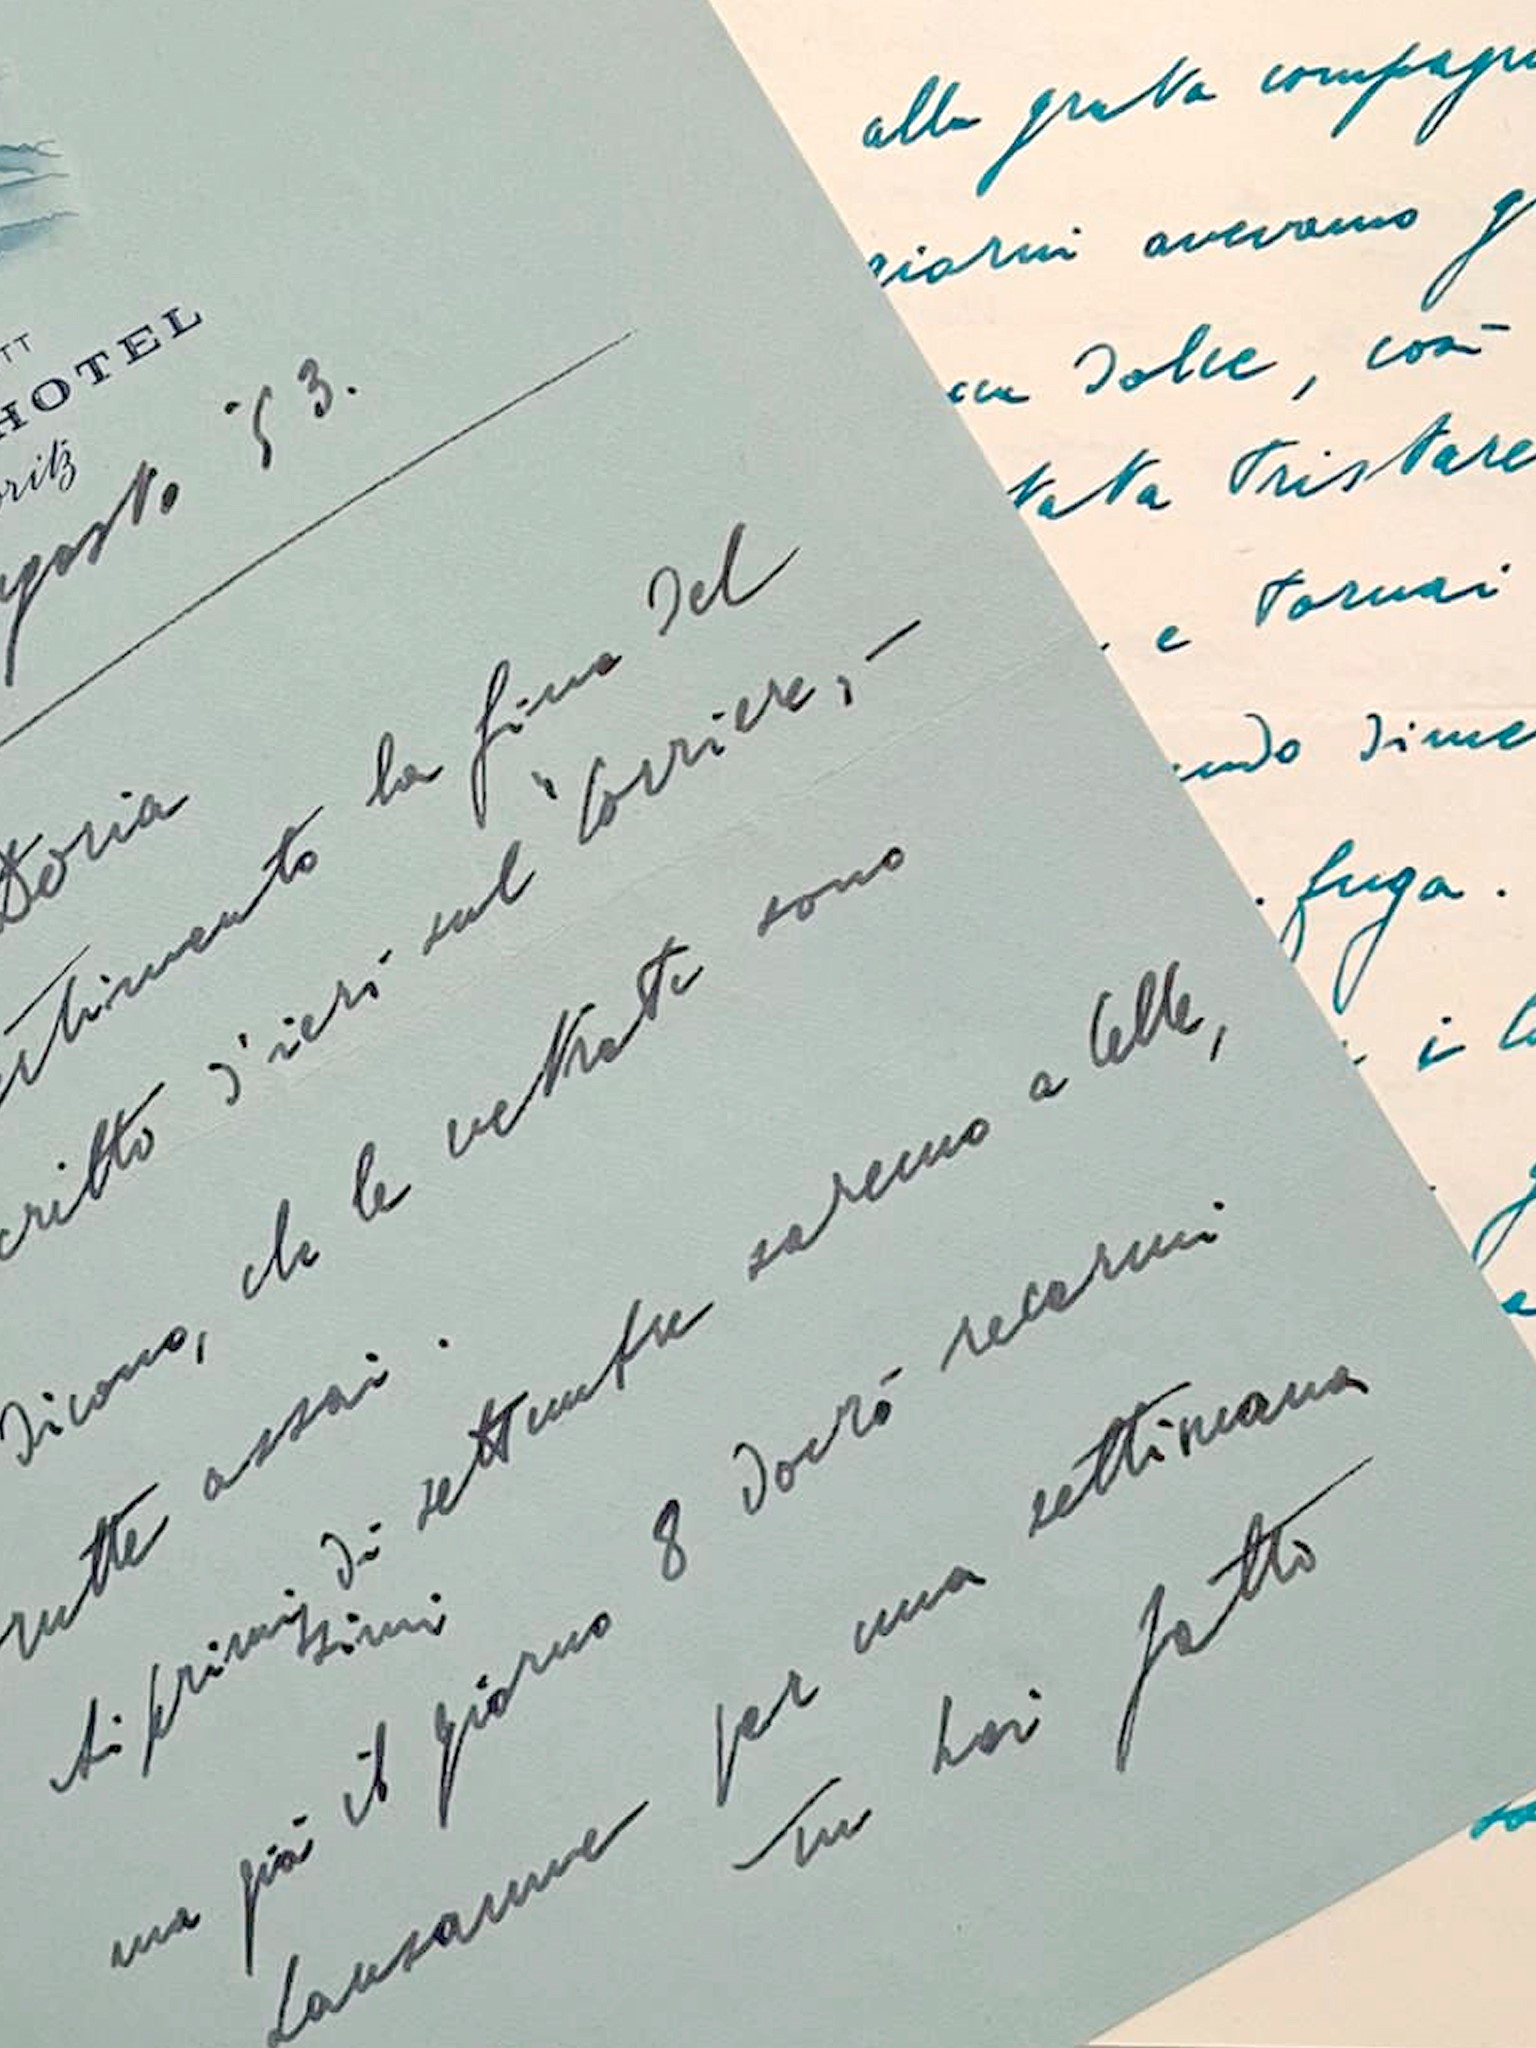 TT
HOTEL
oritz
gosto '53.
Doria
rtimento la fine del
critto d'ieri sul "Corriere,,-
dicono, che le vetrate sono
rutte assai.
Ai primissimi di settembre saremo a Celle,
ma già il giorno 8 dovrò recarmi
Lausanne per una settimana
Tu hai fatto
alla grata compagni
giorni avevamo g
dolce, così
tata tristare
e tornai
ndo dime
fuga.
i